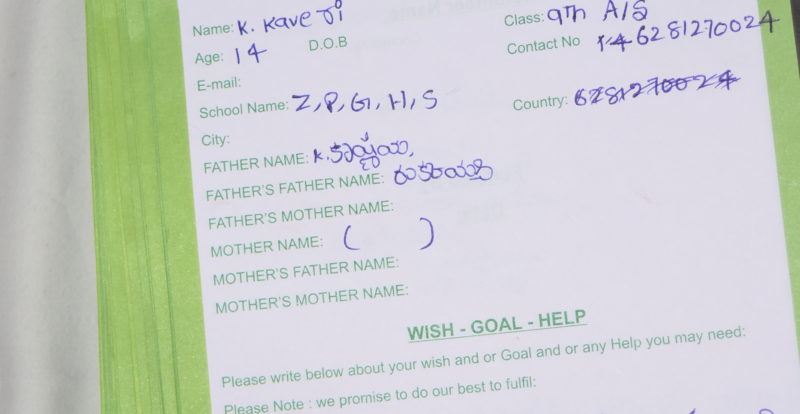 Name: K. Kaveri Class: 9th A/S
Age: 14 D.O.B Contact No 6281270024
E-mail:
School Name: Z, P, G, H, S Country:
City:
FATHER NAME: K.
FATHER'S FATHER NAME:
FATHER'S MOTHER NAME:
MOTHER NAME: ( )
MOTHER'S FATHER NAME:
MOTHER'S MOTHER NAME:
WISH - GOAL - HELP
Please write below about your wish and or Goal and or any Help you may need:
Please Note : we promise to do our best to fulfil: